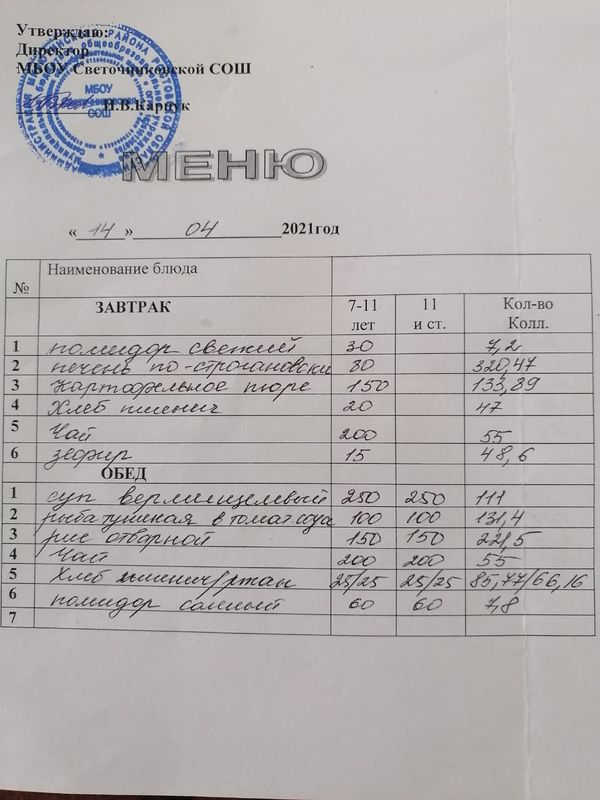 Утверждаю:
Директор
МБОУ Светочниковской СОШ
И.В.Карпук
МБОУ
СОШ
МЕНЮ
« 14 » 04 2021год
№ Наименование блюда
ЗАВТРАК 7-11 лет 11 и ст. Кол-во Колл.
1 помидор свежий 30 7,2
2 печень по-строгановски 80 320,47
3 Картофельное пюре 150 133,89
4 Хлеб пшенич 20 47
5 Чай 200 55
6 зефир 15 48,6
ОБЕД
1 суп вермишелевый 250 250 111
2 рыба тушеная в томат 100 100 131,4
3 рис отварной 150 150 221,5
4 Чай 200 200 55
5 Хлеб пшенич/ржан 25/25 25/25 85,77/66,16
6 помидор соленый 60 60 7,8
7